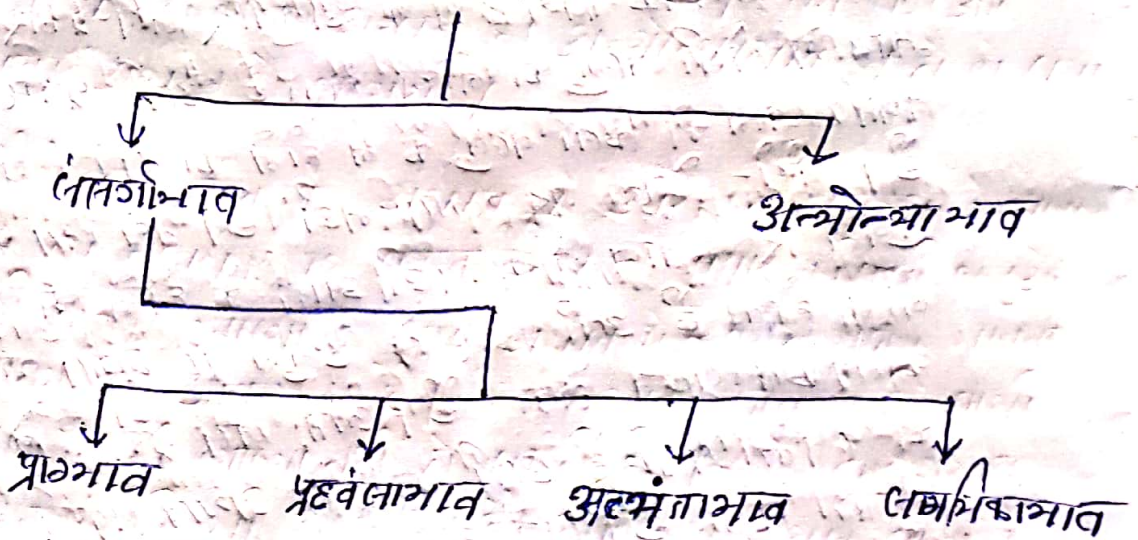 संसर्गाभाव
अन्योन्याभाव
प्रागभाव प्रध्वंसाभाव अत्यंताभाव सामयिकाभाव